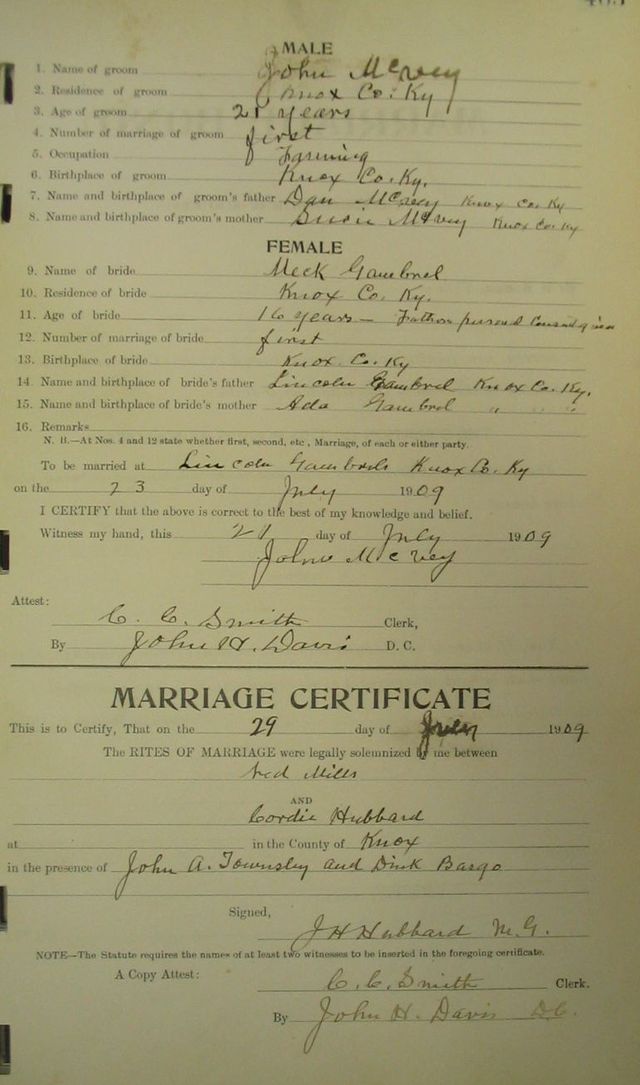 MALE
1. Name of groom John McVey
2. Residence of groom Knox Co. Ky
3. Age of groom 21 years
4. Number of marriage of groom first
5. Occupation Farming
6. Birthplace of groom Knox Co. Ky.
7. Name and birthplace of groom's father Dan McVey Knox Co. Ky
8. Name and birthplace of groom's mother Susie McVey Knox Co. Ky
FEMALE
9. Name of bride Meck Gambrel
10. Residence of bride Knox Co. Ky.
11. Age of bride 16 years — Father
12. Number of marriage of bride first
13. Birthplace of bride Knox Co. Ky
14. Name and birthplace of bride's father Lincoln Gambrel Knox Co. Ky.
15. Name and birthplace of bride's mother Ada Gambrel " " "
16. Remarks
N. B.—At Nos. 4 and 12 state whether first, second, etc, Marriage, of each or either party.
To be married at Lincoln Gambrels Knox Co. Ky
on the 23 day of July 1909
I CERTIFY that the above is correct to the best of my knowledge and belief.
Witness my hand, this 21 day of July 1909
John McVey
Attest:
C. C. Smith Clerk,
By John H. Davis D. C.
MARRIAGE CERTIFICATE
This is to Certify, That on the 29 day of 1909
The RITES OF MARRIAGE were legally solemnized by me between
Mills
AND
Cordie Hubbard
at in the County of Knox
in the presence of John A. Townsley and Dink Bargo
Signed,
J H Hubbard M. G.
NOTE—The Statute requires the names of at least two witnesses to be inserted in the foregoing certificate.
A Copy Attest:
C. C. Smith Clerk.
By John H. Davis D.C.